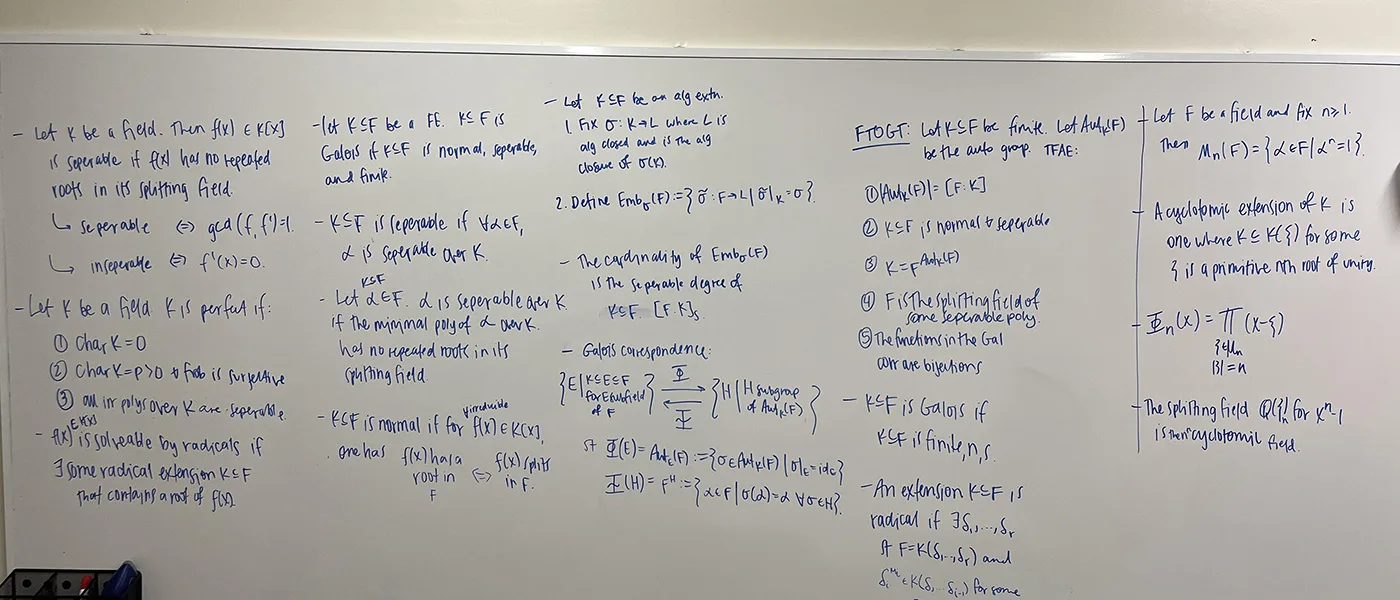 - Let K be a field. Then f(x) ∈ K[x]
is seperable if f(x) has no repeated
roots in its splitting field.
↳ seperable ⇔ gcd(f, f')=1.
↳ inseperable ⇔ f'(x)=0.
- Let K be a field. K is perfect if:
① Char K=0
② Char K=p>0 & frob is surjective
③ all irr polys over K are seperable.
- f(x) ∈K[x] is solveable by radicals if
∃ some radical extension K⊆F
that contains a root of f(x).
- let K⊆F be a FE. K⊆F is
Galois if K⊆F is normal, seperable,
and finite.
- K⊆F is seperable if ∀α∈F,
α is seperable over K.
K⊆F
- Let α∈F. α is seperable over K
if the minimal poly of α over K.
has no repeated roots in its
splitting field.
- K⊆F is normal if for irreducible f(x)∈K[x],
one has f(x) has a root in F ⇔ f(x) splits in F.
- Let K⊆F be an alg extn.
1. Fix σ: K→L where L is
alg closed and is the alg
closure of σ(K).
2. Define Emb_σ(F):={ σ̃: F→L | σ̃|_K = σ}.
- The cardinality of Emb_σ(F)
is the seperable degree of
K⊆F. [F:K]_s
- Galois correspondence:
{E | K⊆E⊆F for E subfield of F} ⇄ {H | H subgroup of Aut_K(F)}
Φ
Ψ
st Φ(E)=Aut_E(F):={σ∈Aut_K(F) | σ|_E=id_E}
Ψ(H)=F^H:={α∈F | σ(α)=α ∀σ∈H}.
FTOGT: Let K⊆F be finite. Let Aut_K(F)
be the auto group. TFAE:
① |Aut_K(F)|=[F:K]
② K⊆F is normal & seperable
③ K=F^Aut_K(F)
④ F is the splitting field of
some seperable poly.
⑤ The functions in the Gal
corr are bijections
- K⊆F is Galois if
K⊆F is finite, n, s.
- An extension K⊆F is
radical if ∃ δ₁,...,δᵣ
st F=K(δ₁,..,δᵣ) and
δᵢ^mᵢ ∈K(δ₁...δᵢ₋₁) for some
- Let F be a field and fix n≥1.
Then μₙ(F)={α∈F | αⁿ=1}.
- A cyclotomic extension of K is
one where K⊆K(ξ) for some
ξ is a primitive nth root of unity.
- Φₙ(x)=∏(x-ξ)
ξ∈μₙ
|ξ|=n
- The splitting field Q(ξₙ) for xⁿ-1
is the nth cyclotomic field.